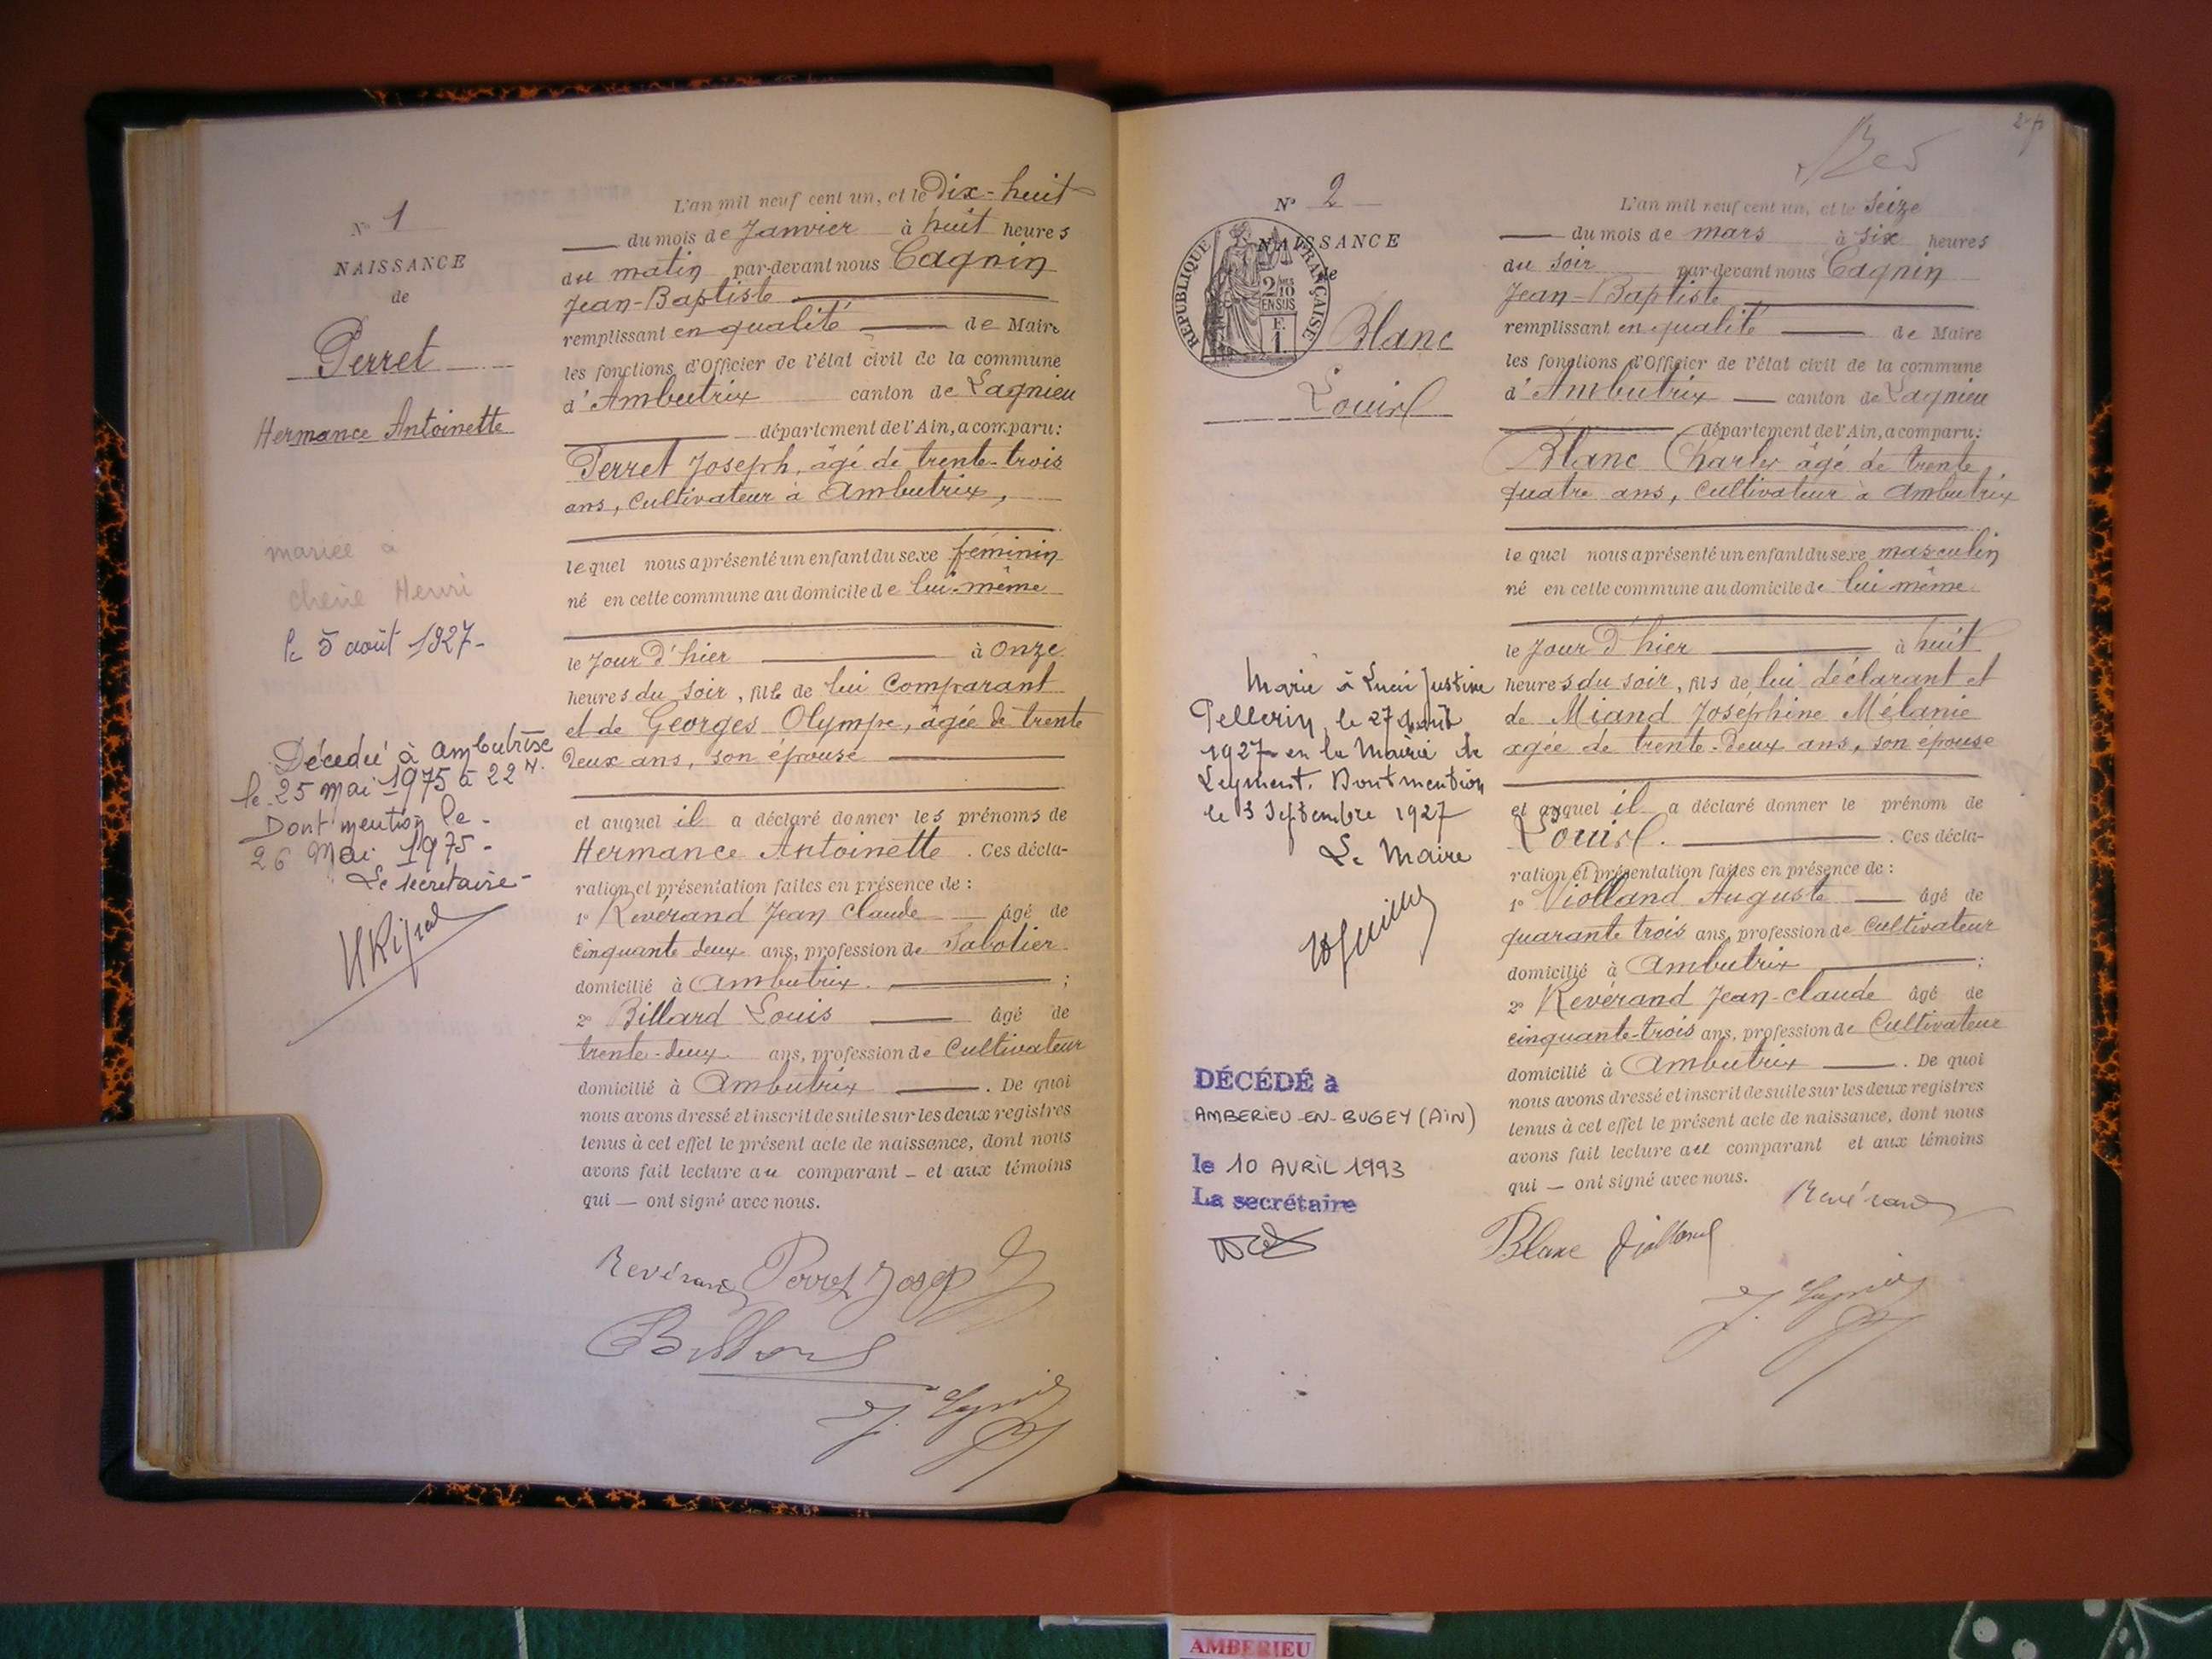 N° 1
NAISSANCE
de
Perret
Hermance Antoinette
mariée a
chene Henri
le 5 août 1927-
Décédée à Ambutrix
le 25 mai 1975 à 22 H.
Dont mention le -
26 Mai 1975 -
Le secretaire -
L'an mil neuf cent un, et le Dix-huit
du mois de Janvier à huit heures
du matin par-devant nous Cagnin
Jean-Baptiste
remplissant en qualité de Maire
les fonctions d'Officier de l'état civil de la commune
d'Ambutrix canton de Lagnieu
département de l'Ain, a comparu:
Perret Joseph, âgé de trente-trois
ans, Cultivateur à Ambutrix,
lequel nous a présenté un enfant du sexe féminin
né en cette commune au domicile de lui-même
le Jour d'hier à Onze
heures du Soir, fille de lui Comparant
et de Georges Olympe, âgée de trente
Deux ans, son épouse
et auquel il a déclaré donner les prénoms de
Hermance Antoinette. Ces décla-
ration et présentation faites en présence de :
1° Revérand Jean Claude âgé de
Cinquante deux ans, profession de Sabotier
domicilié à Ambutrix. ;
2° Billard Louis âgé de
trente-deux ans, profession de Cultivateur
domicilié à Ambutrix. De quoi
nous avons dressé et inscrit de suite sur les deux registres
tenus à cet effet le présent acte de naissance, dont nous
avons fait lecture au comparant - et aux témoins
qui - ont signé avec nous.
Revérand Perret Joseph
Billard
J. Cagnin
N° 2
NAISSANCE
de
RÉPUBLIQUE FRANÇAISE
2/10
EN SUS
F.
1.
Blanc
Louis
Marié à Lucie Justine
Pellerin, le 27 Août
1927 en la Mairie de
Leyment. Dont mention
le 3 Septembre 1927
Le Maire
DÉCÉDÉ à
AMBERIEU-EN-BUGEY (AIN)
le 10 AVRIL 1993
La secrétaire
L'an mil neuf cent un, et le Seize
du mois de mars à Six heures
du Soir par-devant nous Cagnin
Jean-Baptiste
remplissant en qualité de Maire
les fonctions d'Officier de l'état civil de la commune
d'Ambutrix canton de Lagnieu
département de l'Ain, a comparu:
Blanc Charles âgé de trente
quatre ans, Cultivateur à Ambutrix
lequel nous a présenté un enfant du sexe masculin
né en cette commune au domicile de lui même
le Jour d'hier à huit
heures du soir, fils de lui déclarant et
de Miand Joséphine Mélanie
agée de trente-deux ans, son épouse
et auquel il a déclaré donner le prénom de
Louis. Ces décla-
ration et présentation faites en présence de :
1° Violland Auguste âgé de
quarante trois ans, profession de Cultivateur
domicilié à Ambutrix ;
2° Revérand Jean-Claude âgé de
cinquante-trois ans, profession de Cultivateur
domicilié à Ambutrix. De quoi
nous avons dressé et inscrit de suite sur les deux registres
tenus à cet effet le présent acte de naissance, dont nous
avons fait lecture au comparant et aux témoins
qui - ont signé avec nous.
Revérand
Blanc Violland
J. Cagnin
AMBERIEU